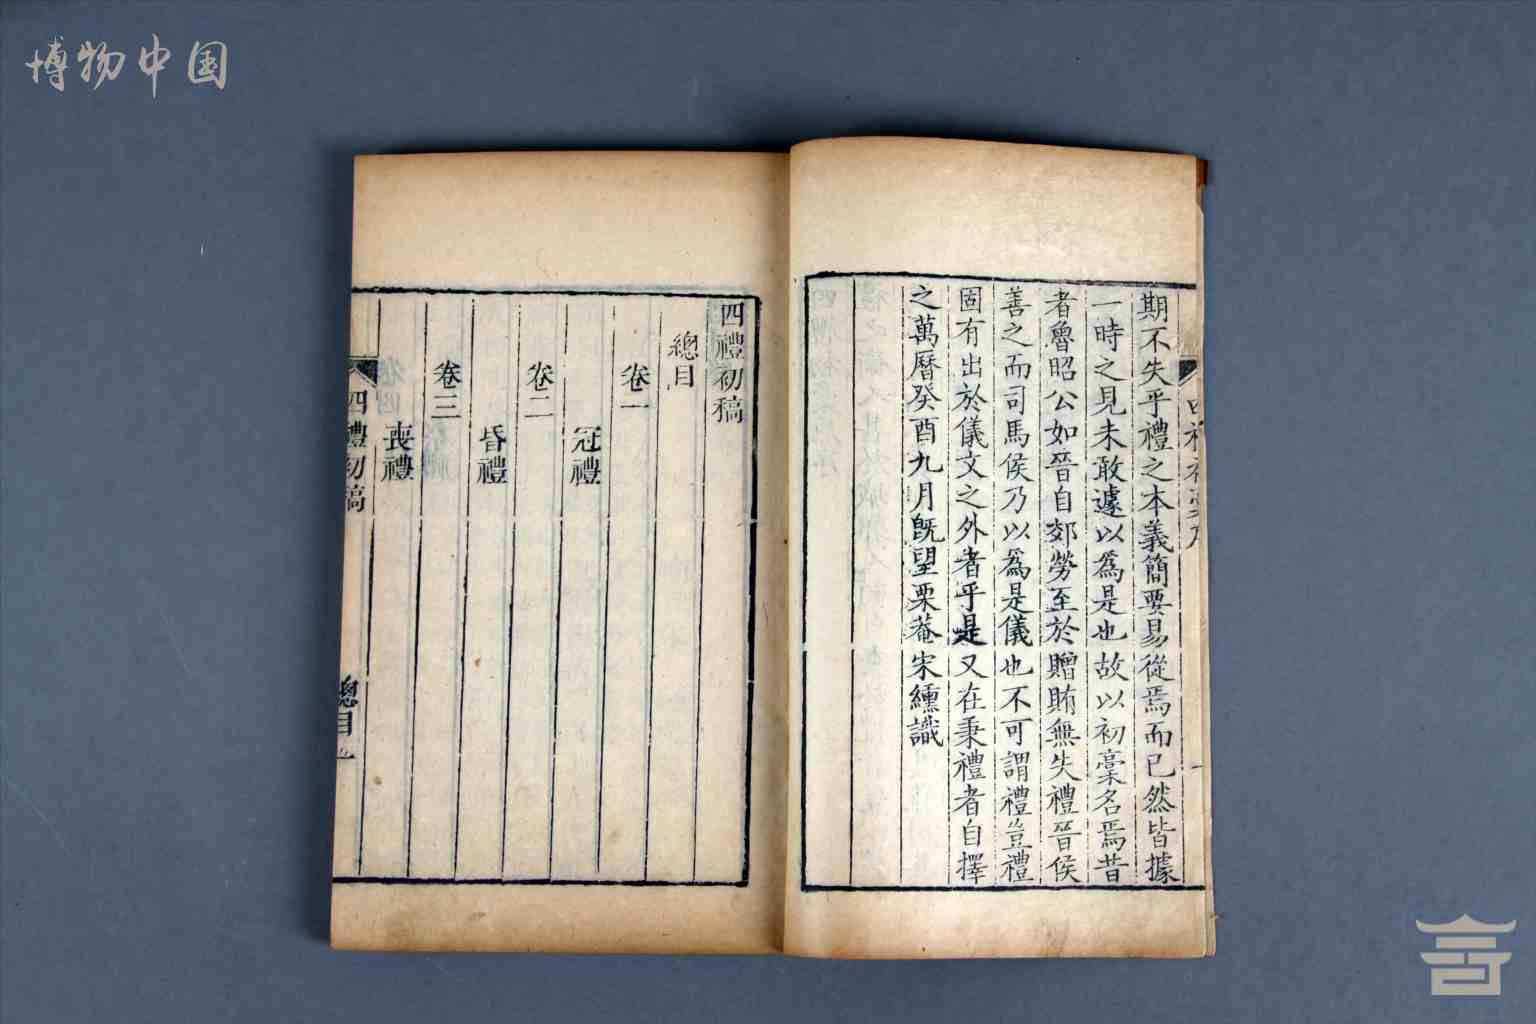 博物中国
期不失乎禮之本義簡要易從焉而已然皆據
一時之見未敢遽以爲是也故以初稾名焉昔
者魯昭公如晉自郊勞至於贈賄無失禮晉侯
善之而司馬侯乃以爲是儀也不可謂禮豈禮
固有出於儀文之外者乎是又在秉禮者自擇
之萬曆癸酉九月旣望栗菴宋纁識
四禮初稿
總目
卷一
冠禮
卷二
昏禮
卷三
喪禮
四禮初稿
總目